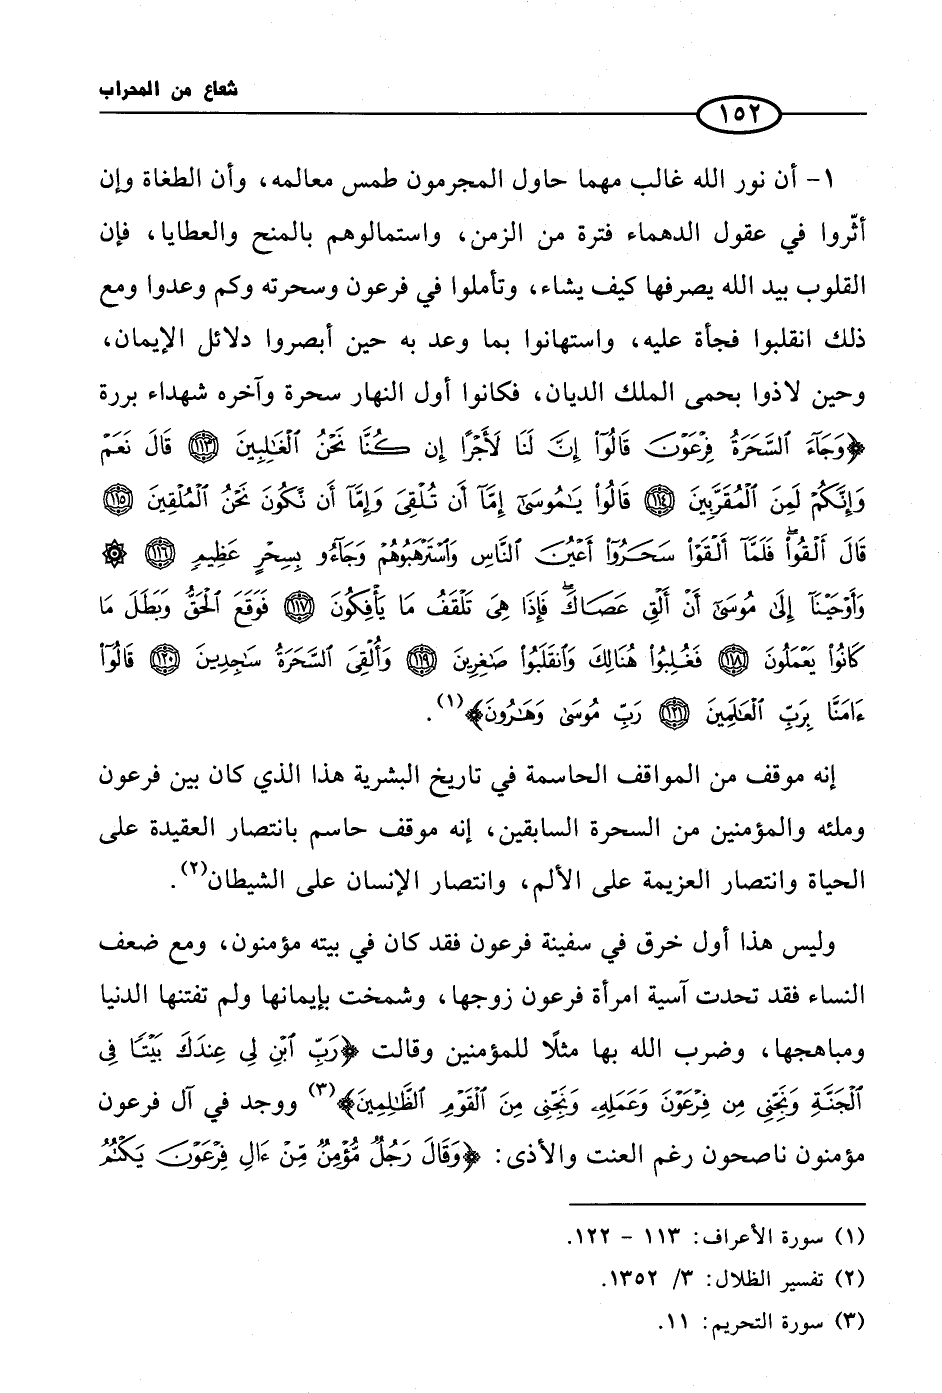 شعاع من المحراب
١٥٢
١- أن نور الله غالب مهما حاول المجرمون طمس معالمه، وأن الطغاة وإن
أثّروا في عقول الدهماء فترة من الزمن، واستمالوهم بالمنح والعطايا، فإن
القلوب بيد الله يصرفها كيف يشاء، وتأملوا في فرعون وسحرته وكم وعدوا ومع
ذلك انقلبوا فجأة عليه، واستهانوا بما وعد به حين أبصروا دلائل الإيمان،
وحين لاذوا بحمى الملك الديان، فكانوا أول النهار سحرة وآخره شهداء بررة
﴿وَجَآءَ ٱلسَّحَرَةُ فِرۡعَوۡنَ قَالُوٓاْ إِنَّ لَنَا لَأَجۡرًا إِن كُنَّا نَحۡنُ ٱلۡغَٰلِبِينَ ١١٣ قَالَ نَعَمۡ
وَإِنَّكُمۡ لَمِنَ ٱلۡمُقَرَّبِينَ ١١٤ قَالُواْ يَٰمُوسَىٰٓ إِمَّآ أَن تُلۡقِيَ وَإِمَّآ أَن نَّكُونَ نَحۡنُ ٱلۡمُلۡقِينَ ١١٥
قَالَ أَلۡقُواْۖ فَلَمَّآ أَلۡقَوۡاْ سَحَرُوٓاْ أَعۡيُنَ ٱلنَّاسِ وَٱسۡتَرۡهَبُوهُمۡ وَجَآءُو بِسِحۡرٍ عَظِيمٖ ١١٦ ۞
وَأَوۡحَيۡنَآ إِلَىٰ مُوسَىٰٓ أَنۡ أَلۡقِ عَصَاكَۖ فَإِذَا هِيَ تَلۡقَفُ مَا يَأۡفِكُونَ ١١٧ فَوَقَعَ ٱلۡحَقُّ وَبَطَلَ مَا
كَانُواْ يَعۡمَلُونَ ١١٨ فَغُلِبُواْ هُنَالِكَ وَٱنقَلَبُواْ صَٰغِرِينَ ١١٩ وَأُلۡقِيَ ٱلسَّحَرَةُ سَٰجِدِينَ ١٢٠ قَالُوٓاْ
ءَامَنَّا بِرَبِّ ٱلۡعَٰلَمِينَ ١٢١ رَبِّ مُوسَىٰ وَهَٰرُونَ﴾(١).
إنه موقف من المواقف الحاسمة في تاريخ البشرية هذا الذي كان بين فرعون
وملئه والمؤمنين من السحرة السابقين، إنه موقف حاسم بانتصار العقيدة على
الحياة وانتصار العزيمة على الألم، وانتصار الإنسان على الشيطان(٢).
وليس هذا أول خرق في سفينة فرعون فقد كان في بيته مؤمنون، ومع ضعف
النساء فقد تحدت آسية امرأة فرعون زوجها، وشمخت بإيمانها ولم تفتنها الدنيا
ومباهجها، وضرب الله بها مثلًا للمؤمنين وقالت ﴿رَبِّ ٱبۡنِ لِي عِندَكَ بَيۡتٗا فِي
ٱلۡجَنَّةِ وَنَجِّنِي مِن فِرۡعَوۡنَ وَعَمَلِهِۦ وَنَجِّنِي مِنَ ٱلۡقَوۡمِ ٱلظَّٰلِمِينَ﴾(٣) ووجد في آل فرعون
مؤمنون ناصحون رغم العنت والأذى: ﴿وَقَالَ رَجُلٞ مُّؤۡمِنٞ مِّنۡ ءَالِ فِرۡعَوۡنَ يَكۡتُمُ
(١) سورة الأعراف: ١١٣ - ١٢٢.
(٢) تفسير الظلال: ٣/ ١٣٥٢.
(٣) سورة التحريم: ١١.